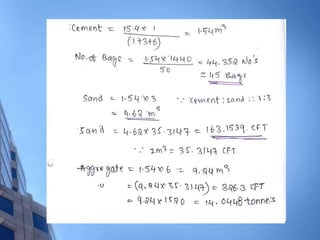 :Cement = 15.4 x 1 / (1+3+6) = 1.54m³
No. of Bags = 1.54 x 1440 / 50 = 44.352 No's
≃ 45 Bags
Sand = 1.54 x 3 ∵ cement : sand :: 1:3
= 4.62 m³
Sand = 4.62 x 35.3147 = 163.1539. CFT
∵ 1m³ = 35.3147 CFT
Aggregate = 1.54 x 6 = 9.24 m³
" = (9.24 x 35.3147) = 326.3 CFT
= 9.24 x 1520 = 14.0448 tonne's